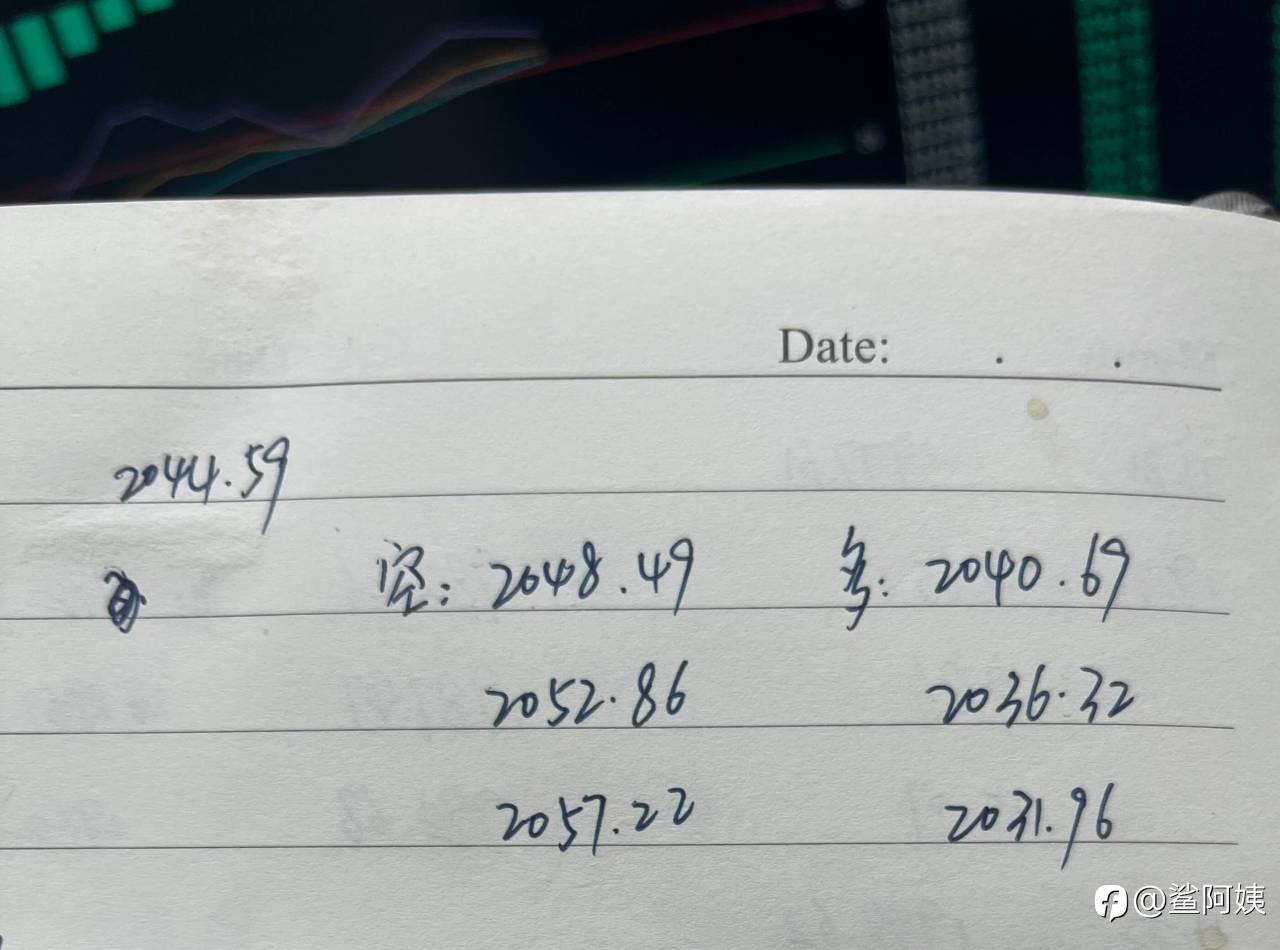 Date: . .
2044.59
空: 2048.49 多: 2040.69
2052.86 2036.32
2057.22 2031.96
@鲨阿姨